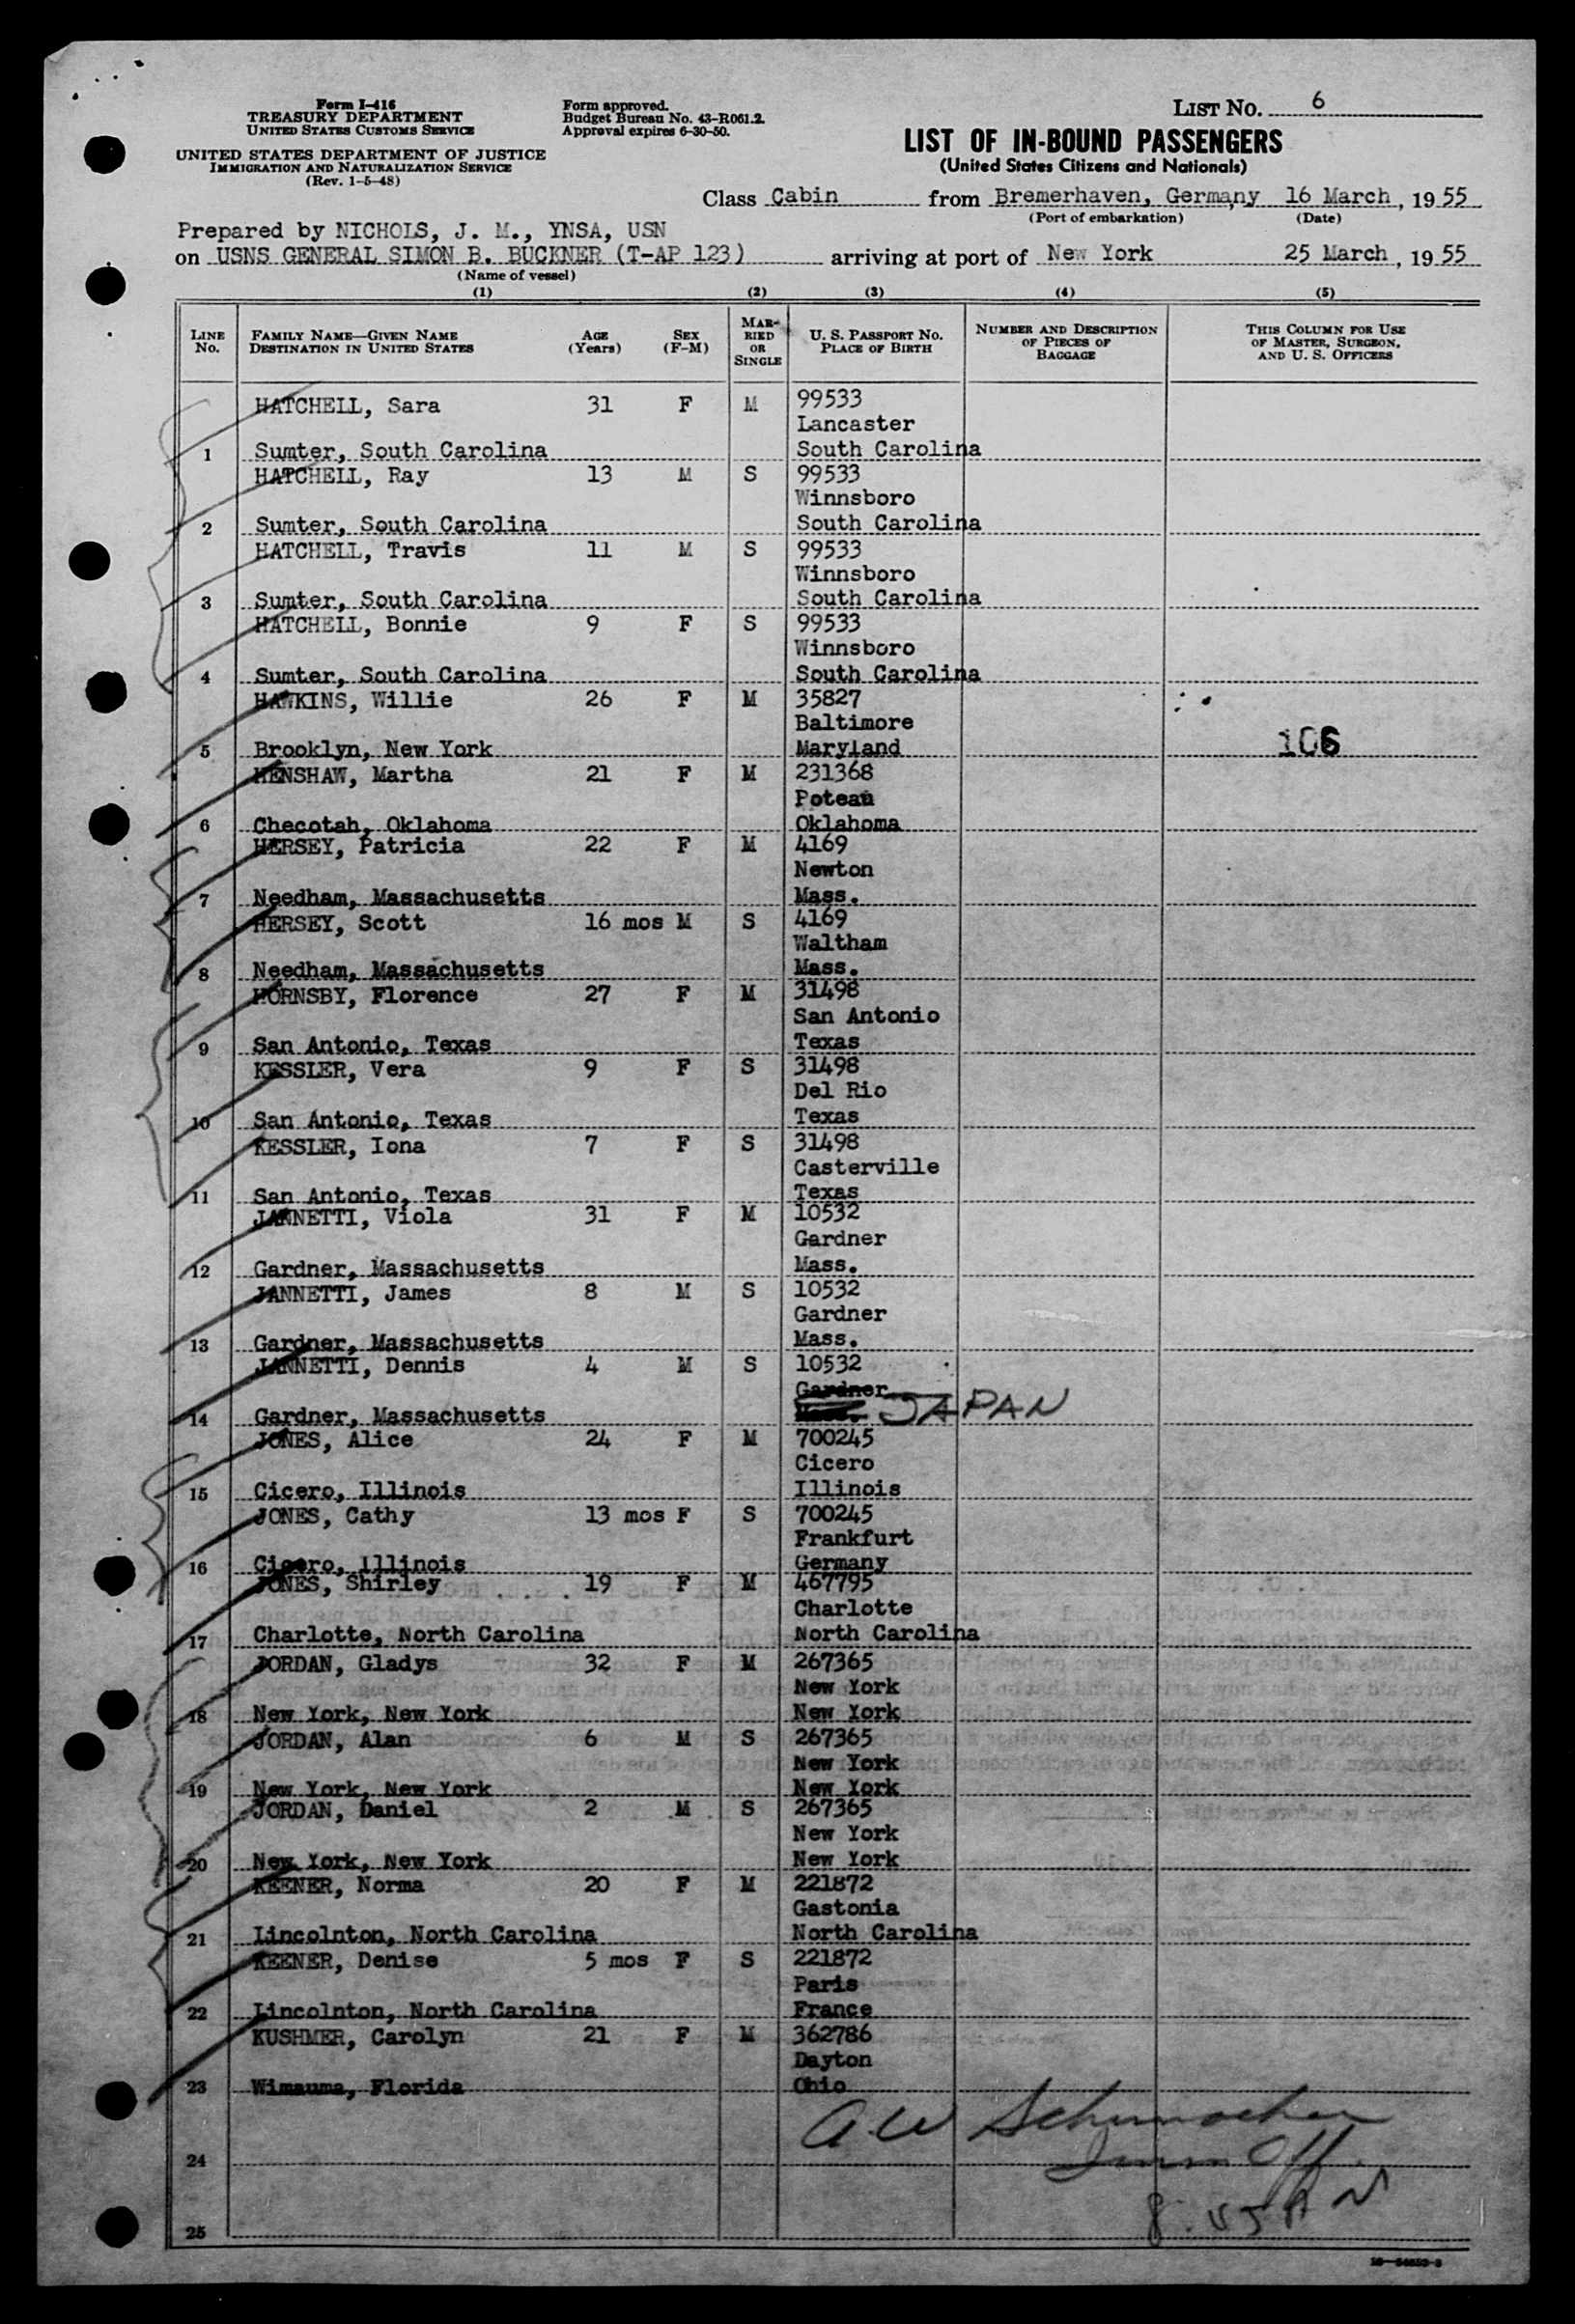 Form I-416
TREASURY DEPARTMENT
UNITED STATES CUSTOMS SERVICE
UNITED STATES DEPARTMENT OF JUSTICE
IMMIGRATION AND NATURALIZATION SERVICE
(Rev. 1-5-48)
Form approved.
Budget Bureau No. 43-R061.2.
Approval expires 6-30-50.
LIST NO. 6
LIST OF IN-BOUND PASSENGERS
(United States Citizens and Nationals)
Class Cabin from Bremerhaven, Germany 16 March, 1955
(Port of embarkation) (Date)
Prepared by NICHOLS, J. M., YNSA, USN
on USNS GENERAL SIMON B. BUCKNER (T-AP 123) arriving at port of New York 25 March, 1955
(Name of vessel)
(1) (2) (3) (4) (5)
LINE No. FAMILY NAME—GIVEN NAME DESTINATION IN UNITED STATES AGE (Years) SEX (F-M) MARRIED OR SINGLE U. S. PASSPORT NO. PLACE OF BIRTH NUMBER AND DESCRIPTION OF PIECES OF BAGGAGE THIS COLUMN FOR USE OF MASTER, SURGEON, AND U. S. OFFICERS
HATCHELL, Sara 31 F M 99533
Lancaster
1 Sumter, South Carolina South Carolina
HATCHELL, Ray 13 M S 99533
Winnsboro
2 Sumter, South Carolina South Carolina
HATCHELL, Travis 11 M S 99533
Winnsboro
3 Sumter, South Carolina South Carolina
HATCHELL, Bonnie 9 F S 99533
Winnsboro
4 Sumter, South Carolina South Carolina
HAWKINS, Willie 26 F M 35827
Baltimore
5 Brooklyn, New York Maryland 106
HENSHAW, Martha 21 F M 231368
Poteau
6 Checotah, Oklahoma Oklahoma
HERSEY, Patricia 22 F M 4169
Newton
7 Needham, Massachusetts Mass.
HERSEY, Scott 16 mos M S 4169
Waltham
8 Needham, Massachusetts Mass.
HORNSBY, Florence 27 F M 31498
San Antonio
9 San Antonio, Texas Texas
KESSLER, Vera 9 F S 31498
Del Rio
10 San Antonio, Texas Texas
KESSLER, Iona 7 F S 31498
Casterville
11 San Antonio, Texas Texas
JANNETTI, Viola 31 F M 10532
Gardner
12 Gardner, Massachusetts Mass.
JANNETTI, James 8 M S 10532
Gardner
13 Gardner, Massachusetts Mass.
JANNETTI, Dennis 4 M S 10532
Gardner
14 Gardner, Massachusetts Mass. JAPAN
JONES, Alice 24 F M 700245
Cicero
15 Cicero, Illinois Illinois
JONES, Cathy 13 mos F S 700245
Frankfurt
16 Cicero, Illinois Germany
JONES, Shirley 19 F M 467795
Charlotte
17 Charlotte, North Carolina North Carolina
JORDAN, Gladys 32 F M 267365
New York
18 New York, New York New York
JORDAN, Alan 6 M S 267365
New York
19 New York, New York New York
JORDAN, Daniel 2 M S 267365
New York
20 New York, New York New York
KEENER, Norma 20 F M 221872
Gastonia
21 Lincolnton, North Carolina North Carolina
KEENER, Denise 5 mos F S 221872
Paris
22 Lincolnton, North Carolina France
KUSHMER, Carolyn 21 F M 362786
Dayton
23 Wimauma, Florida Ohio
A. W Schumacher
24 Imm Off.
25